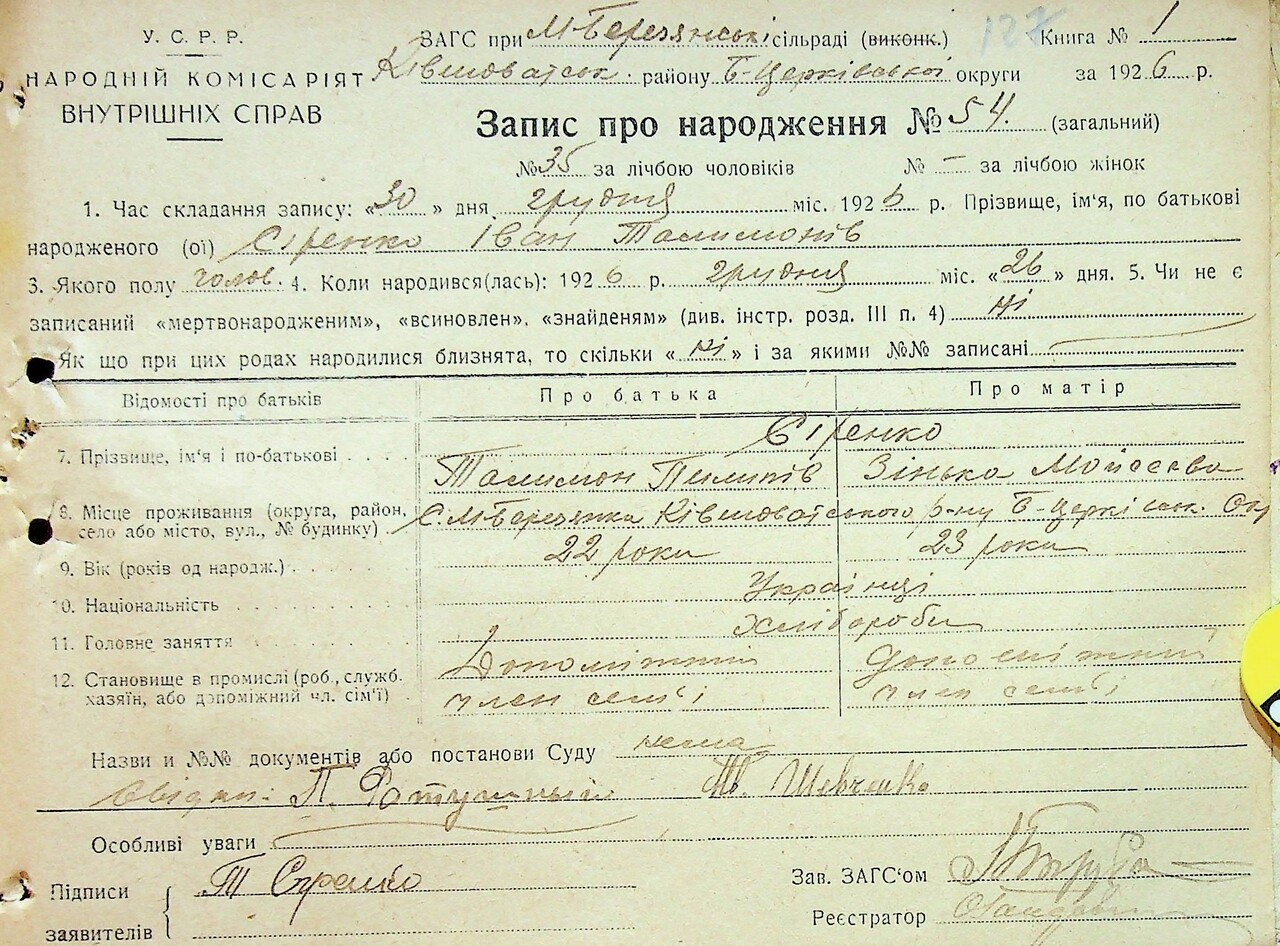 У. С. Р. Р.
НАРОДНІЙ КОМІСАРІЯТ
ВНУТРІШНІХ СПРАВ
ЗАГС при М-Березянські сільраді (виконк.) 127 Книга № 1
Ківшоватськ. району Б-Церківської округи за 1926 р.
Запис про народження № 54. (загальний)
№ 35 за лічбою чоловіків № – за лічбою жінок
1. Час складання запису: «30» дня грудня міс. 1926 р. Прізвище, ім'я, по батькові
народженого (ої) Сіренко Іван Талимонів
3. Якого полу чолов. 4. Коли народився(лась): 1926 р. грудня міс. «26» дня. 5. Чи не є
записаний «мертвонародженим», «всиновлен», «знайденям» (див. інстр. розд. III п. 4) ні
Як що при цих родах народилися близнята, то скільки «ні» і за якими №№ записані
Відомості про батьків Про батька Про матір
Сіренко
7. Прізвище, ім'я і по-батькові Талимон Пилипів Зінька Мойсеева
8. Місце проживання (округа, район, С. М-Березянка Ківшоватського р-ну Б-Церківськ. Окр
село або місто, вул., № будинку)
9. Вік (років од народж.) 22 роки 23 роки
10. Національність Українці
11. Головне заняття Хлібороби
12. Становище в промислі (роб., служб. Допоміжний Допоміжний
хазяїн, або допоміжний чл. сім'ї) член сем'ї член сем'ї
Назви и №№ документів або постанови Суду нема
Свідки: П. Ратушный Шевченко
Особливі уваги
Підписи Т Сіренко Зав. ЗАГС'ом
заявителів Реєстратор